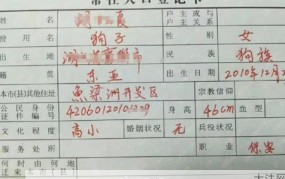 常住人口登记卡
姓名 户主或与户主关系
曾用名 狗子 性别 女
出生地 民族 狗族
籍贯 东亚 出生日期 2010年12月2
本市(县)其他住址 鱼梁洲开发区 宗教信仰
公民身份证件编号 身高 46cm 血型
文化程度 高小 婚姻状况 无 兵役状况
服务处所 职业 保安
何时由何地
迁来本市(县)